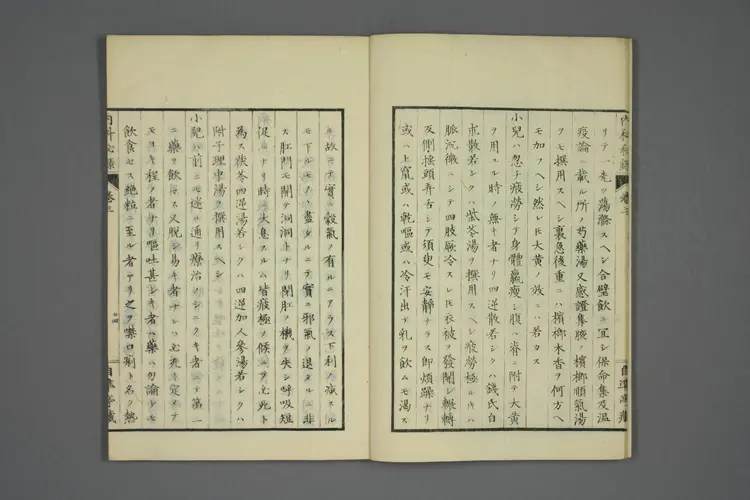 内科秘録
リテ一先ツ蕩滌スヘシ合璧飲ニ宜シ保命集及温
疫論ニ載ル所ノ芍藥湯又感證集腋ノ檳榔順氣湯
ヲモ撰用スヘシ裏急後重ニハ檳榔木香ヲ何方ヘ
モ加フヘシ然レ𪜈大黄ノ效ニハ若カス
小兒ハ忽チ疲勞シテ身體羸瘦シ腹ハ脊ニ附テ大黄
ヲ用ユル時ノ無キ者ナリ四逆散若シクハ錢氏白
朮散若シクハ柴苓湯ヲ撰用スヘシ疲勞極ルキハ
脉沉微ニシテ四肢厥冷スレ𪜈衣被ヲ發開シ輾轉
反側揺頭弄舌シテ須臾モ安靜ナラス即煩躁ナリ
或ハ上竄或ハ乾嘔或ハ冷汗出テ乳ヲ飲ムモ渇ス
自準亭藏
キ故ニテ實ニ穀氣ノ有ルニアラス下利ノ減スル
モ下ルモノハ盡タルニテ實ニ邪氣ノ退タルニ非
ス肛門モ開テ洞洞トナリ閉肛ノ機ヲ失シ呼吸短
促トナリ時時太息スルハ皆疲極ノ候ニテ必死ト
為ス茯苓四逆湯若シクハ四逆加人參湯若シクハ
附子理中湯ヲ撰用スヘシ
小兒ハ前ニモ述ル通リ療治ノシニクキ者ニテ第一
ニ藥ヲ飲セス又脱シ易キ者ナレハ必死ト定メテ
モヨキ程ノ者ナリ嘔吐甚シキ者ハ藥ハ勿論ニモ
飲食セス絶粒ニ至ル者アリ之ヲ噤口痢ト名ク熱
内科秘録
卷三
自準亭藏